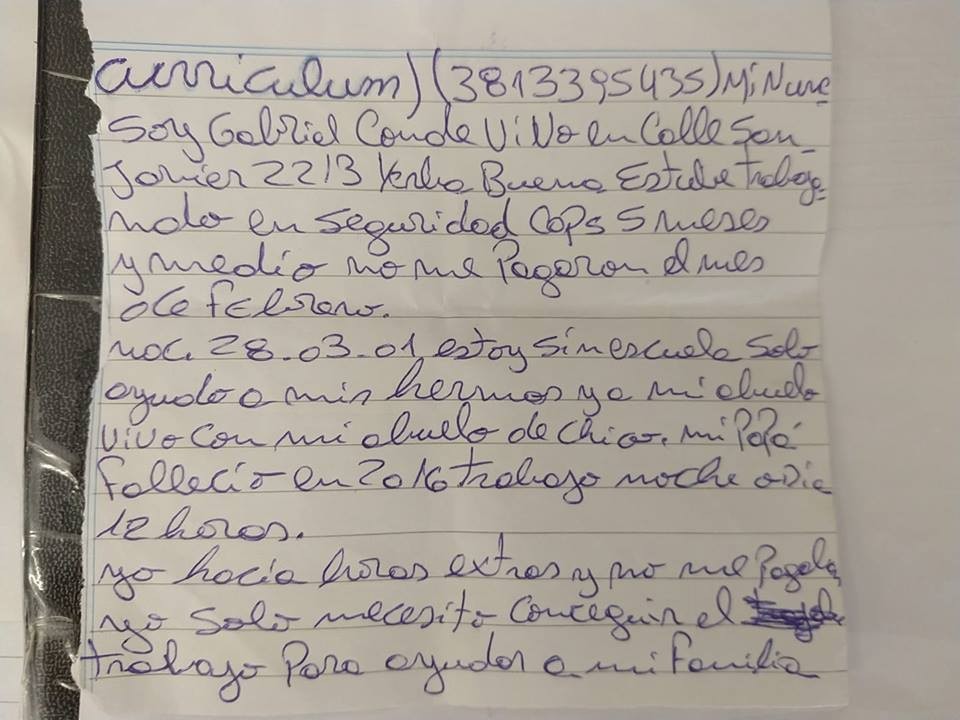 curriculum) (3813395435) Mi Nume
Soy Gabriel Conde ViVo en Calle San
Javier 2213 Yerba Buena Estube trabaja
ndo en seguridad Cops 5 meses
y medio no me Pagaron el mes
de febrero.
nac. 28.03.01 estoy sin escuela solo
ayudo a mis hermos y a mi abuela
vivo con mi abuelo de chico. mi Papá
Fallecio en 2016 trabajo noche o Dia
12 horas.
yo hacia horas extras y no me Pagaba
yo solo necesito conceguir el
trabajo Para ayudar a mi familia